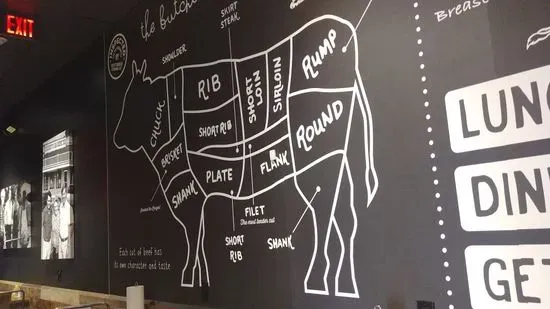 EXIT
the butch
SKIRT
STEAK
Breas
SHOULDER
CHUCK
RIB
SHORT
LOIN
SIRLOIN
RUMP
SHORT RIB
ROUND
BRISKET
SHANK
PLATE
FLANK
FILET
The most tender cut
SHORT
RIB
SHANK
Each cut of beef has
its own character and taste
LUN
DIN
GET